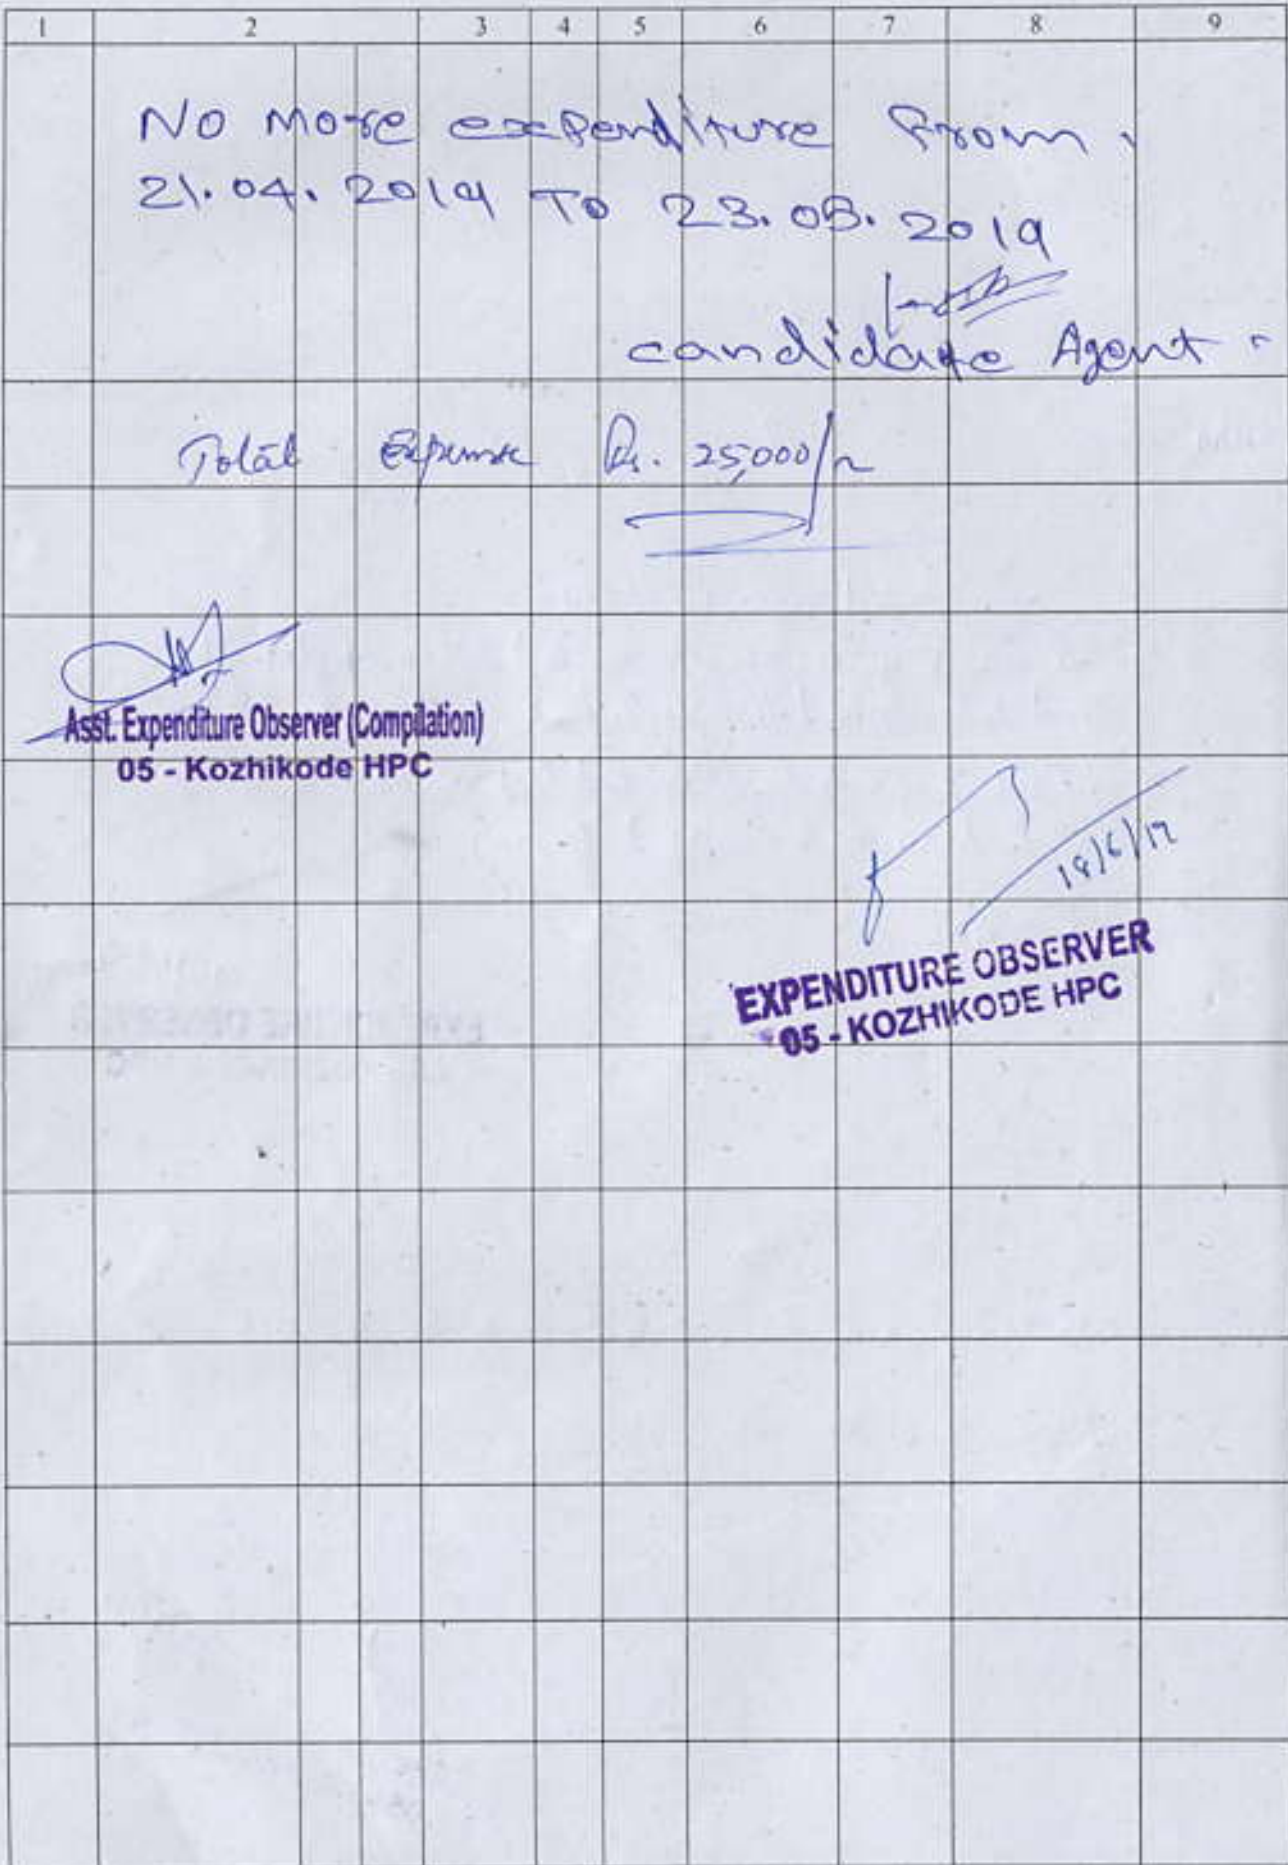 1 2 3 4 5 6 7 8 9
No More expenditure From
21.04.2019 TO 23.05.2019
candidate Agent
Total Expense Rs. 25,000/-
Asst. Expenditure Observer (Compilation)
05 - Kozhikode HPC
EXPENDITURE OBSERVER
05 - KOZHIKODE HPC